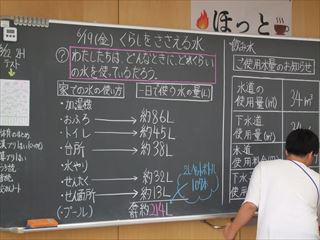 6/19(金) くらしをささえる水
? わたしたちは、どんなときに、どれくらい
の水を使っているだろう。
家での水の使い方 一日で使う水の量(L)
・加湿機
・おふろ → 約86L
・トイレ → 約45L
・台所 → 約38L
・水やり
・せんたく → 約32L
・せん面所 → 約13L
(・プール)
合計 約214L
2Lペットボトル
107本
6/22 2H
テスト
ほっと
飲み水
ご使用水量のお知らせ
水道の
使用量(㎥) 34㎥
下水道
使用量(㎥) 34
水道
下水道
使用